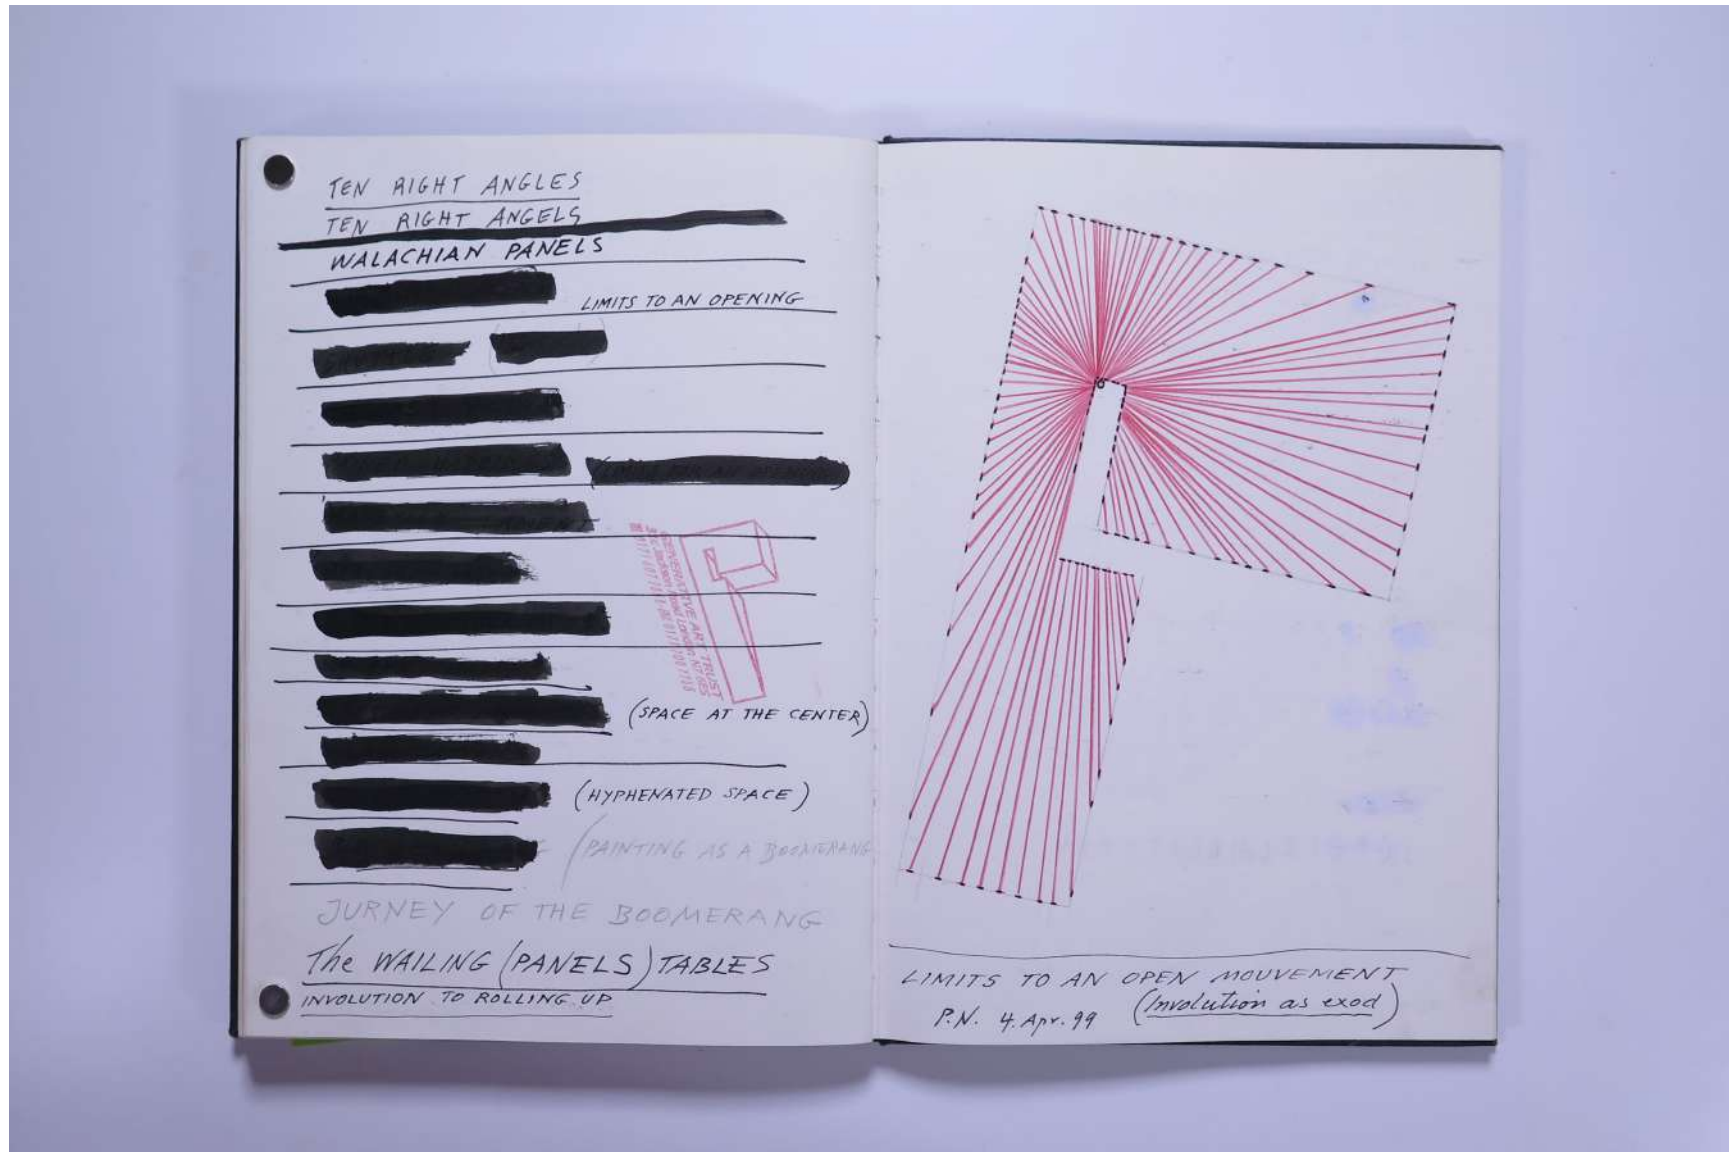 TEN RIGHT ANGLES
TEN RIGHT ANGELS
WALACHIAN PANELS
LIMITS TO AN OPENING
(LIMITS FOR AN OPENING)
GENERATIVE ART TRUST
(SPACE AT THE CENTER)
(HYPHENATED SPACE)
(PAINTING AS A BOOMERANG
JURNEY OF THE BOOMERANG
The WAILING (PANELS) TABLES
INVOLUTION TO ROLLING UP
LIMITS TO AN OPEN MOUVEMENT
(Involution as exod)
P.N. 4. Apr. 99